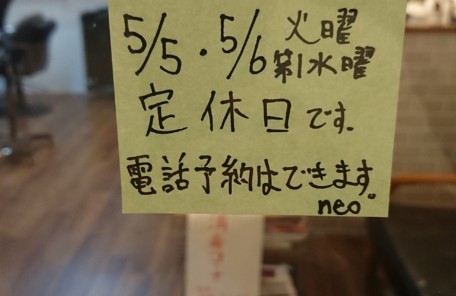 5/5・5/6 火曜 第1水曜
定休日です。
電話予約はできます。
neo